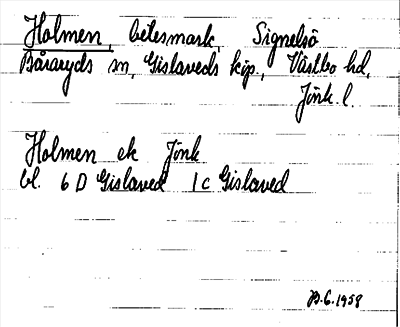 Holmen, betesmark, Signelsö
Båraryds sn, Gislaveds köp., Västbo hd,
Jönk. l.
Holmen ek Jönk
bl. 6 D Gislaved 1c Gislaved
1958